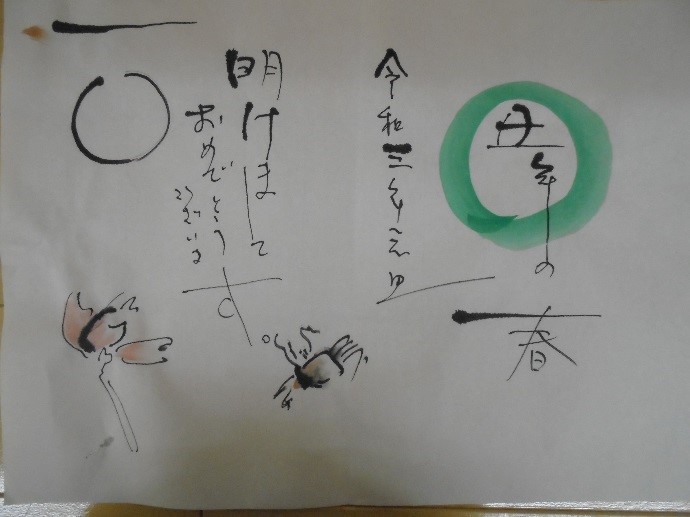 丑年の
春
令和三年元旦
明けまして
おめでとう
ございます。